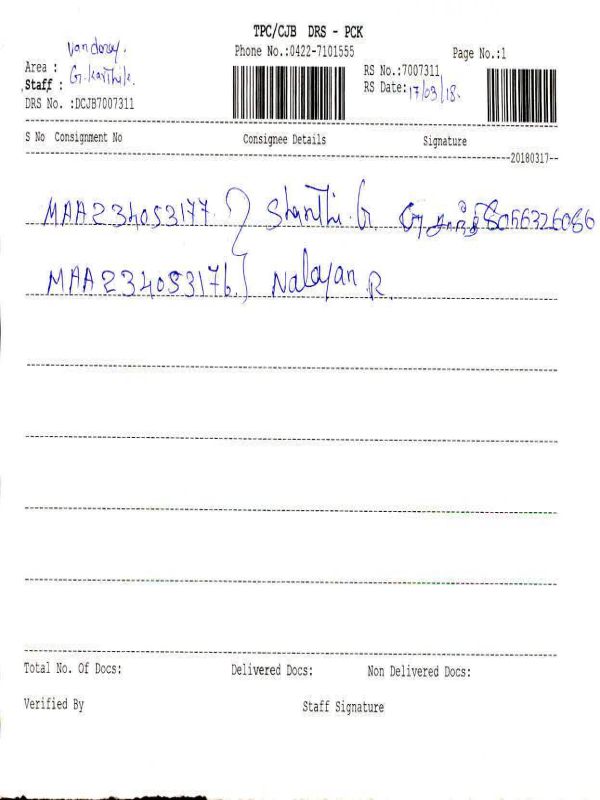 TPC/CJB DRS - PCK
Phone No.:0422-7101555
Page No.:1
Area :
Staff : G.Karthik.
RS No.:7007311
RS Date: 17/03/18.
DRS No. :DCJB7007311
S No Consignment No Consignee Details Signature
20180317
MAA234053177 Shanthi.G சாந்தி 8056326086
MAA234053176 Nalayan R.
Total No. Of Docs: Delivered Docs: Non Delivered Docs:
Verified By Staff Signature